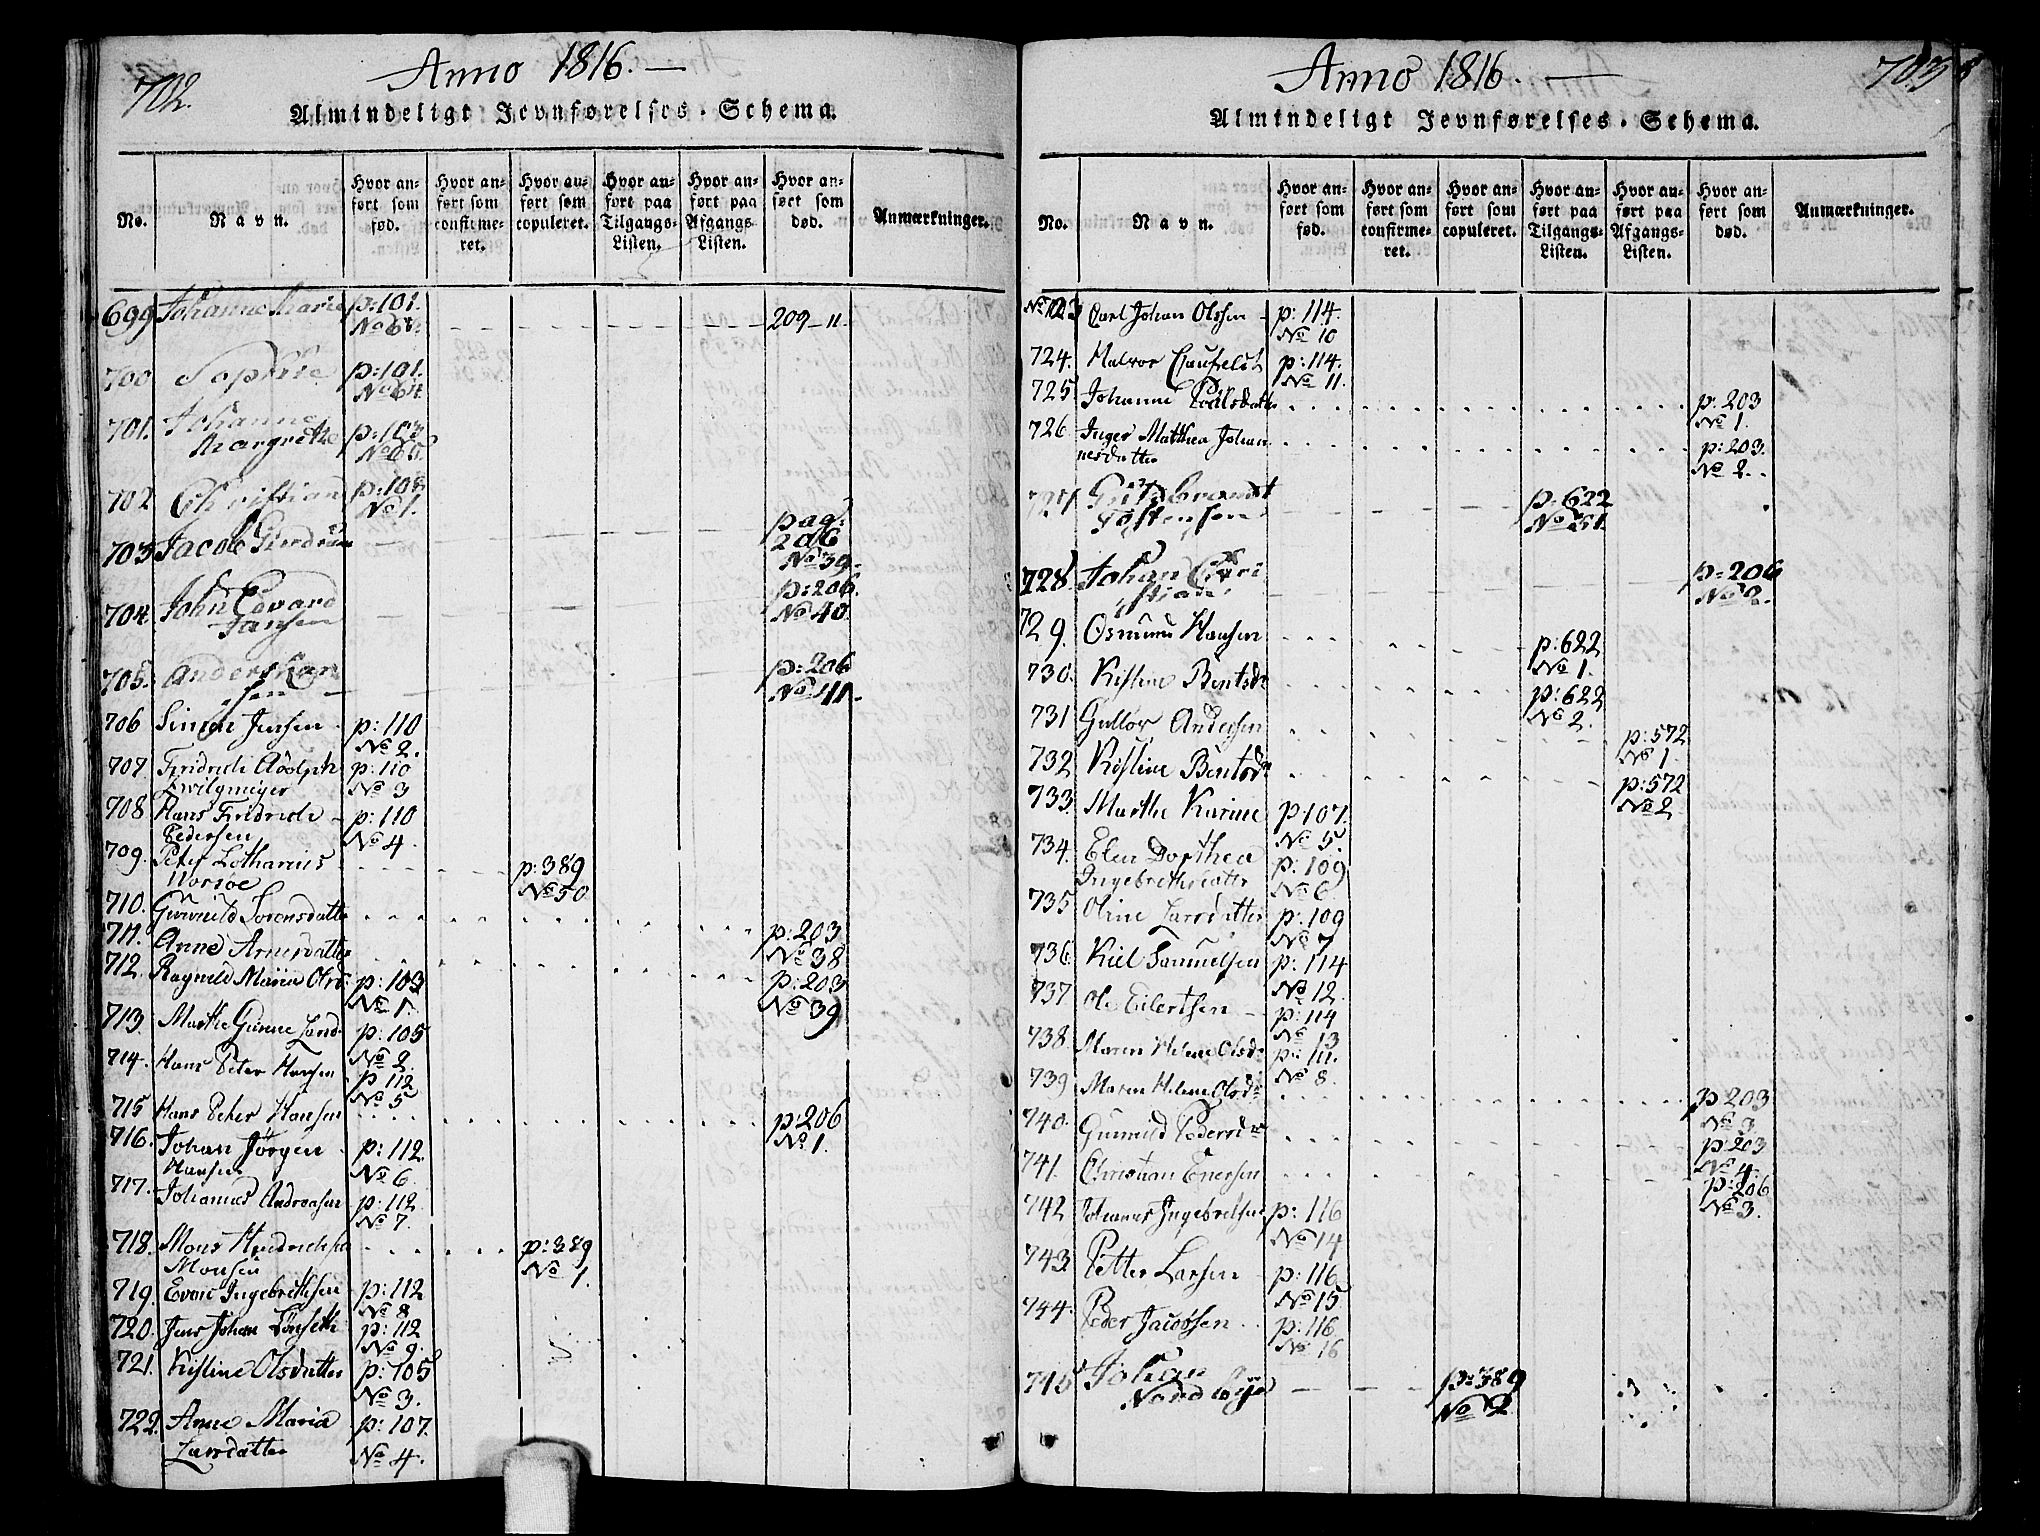 702.
Anno 1816.
Almindeligt Jevnførelses-Schema.
No.
Navn.
Hvor anført som fød.
Hvor anført som confirmeret.
Hvor anført som copuleret.
Hvor anført paa Tilgangs-Listen.
Hvor anført paa Afgangs-Listen.
Hvor anført som død.
Anmærkninger.
699 Johanne Marie p: 101. 209-11.
700 Sophie p: 101. No 64
701. Johanne Margrethe p: 103
702 Christian p: 108 No 1.
703 Jacob pag: 206 No 39.
704 John Edvard Jansen p: 206. No 40.
705. Anders Hansen p: 206 No 41.
706 Simon Jensen p: 110 No 2.
707 Fridrich Adolph Zwilgmeyer p: 110 No 3
708 Hans Fridrich Pedersen p: 110 No 4.
709. Peter Lotharius Norsoe p: 389 No 50
710. Gunnild Sorensdatter p: 203 No 38
711. Anne Arnesdatter p: 203 No 39
712. Ragnild Maria Olsd: p: 103 No 1.
713 Marthe Gurine Larsd: p: 105 No 2.
714. Hans Peter Hansen p 112 No 5
715 Hans Peter Hansen p: 206 No 1.
716. Johan Jörgen Hansen p: 112 No 6.
717. Johannes Andreasen p: 112 No 7.
718. Mons Hendrichsen Monsen p: 389 No 1.
719. Even Ingebrethsen p: 112 No 8
720. Jens Johan Tönseth p: 112 No 9.
721. Kistine Olsdatter p: 105 No 3.
722. Anne Maria Larsdatter p: 107. No 4.
703
Anno 1816.
Almindeligt Jevnførelses-Schema.
No.
Navn.
Hvor anført som fød.
Hvor anført som confirmeret.
Hvor anført som copuleret.
Hvor anført paa Tilgangs-Listen.
Hvor anført paa Afgangs-Listen.
Hvor anført som død.
Anmærkninger.
No 723 Carl Johan Olssen p: 114. No 10
724. Halvor p: 114. No 11.
725 Johanne Poulsdatter p: 203 No 1.
726 Inger Mathea Johannesdatter p: 203. No 2.
727 Guldbrandt Tostensen p: 622
728. Johan Christian p: 206 No 2.
729. Osmund Hansen p: 622 No 1.
730. Kistine Bentsdr p: 622 No 2.
731 Gullov Andersen p: 572 No 1.
732 Kistine Bentsdr p: 572 No 2
733. Marthe Karine p: 107. No 5.
734. Elen Dorthea Ingebrethsdatter p: 109 No 6
735 Oline Larsdatter p: 109 No 7
736. Kiel Samuelsen p: 114 No 12.
737 Ole Eilertsen p: 114 No 13
738. Maren Helene Olsdr p: 111. No 8.
739 Maren Helene Olsdr p 203 No 3
740. Gunnild Pedersdr p: 203 No 4.
741. Christian Enersen p: 206 No 3.
742 Johannes Ingebretsen p: 116 No 14
743. Petter Larsen p: 116 No 15
744. Peder Jacobsen p: 116 No 16
745 Johan Nordbye p: 389 No 2